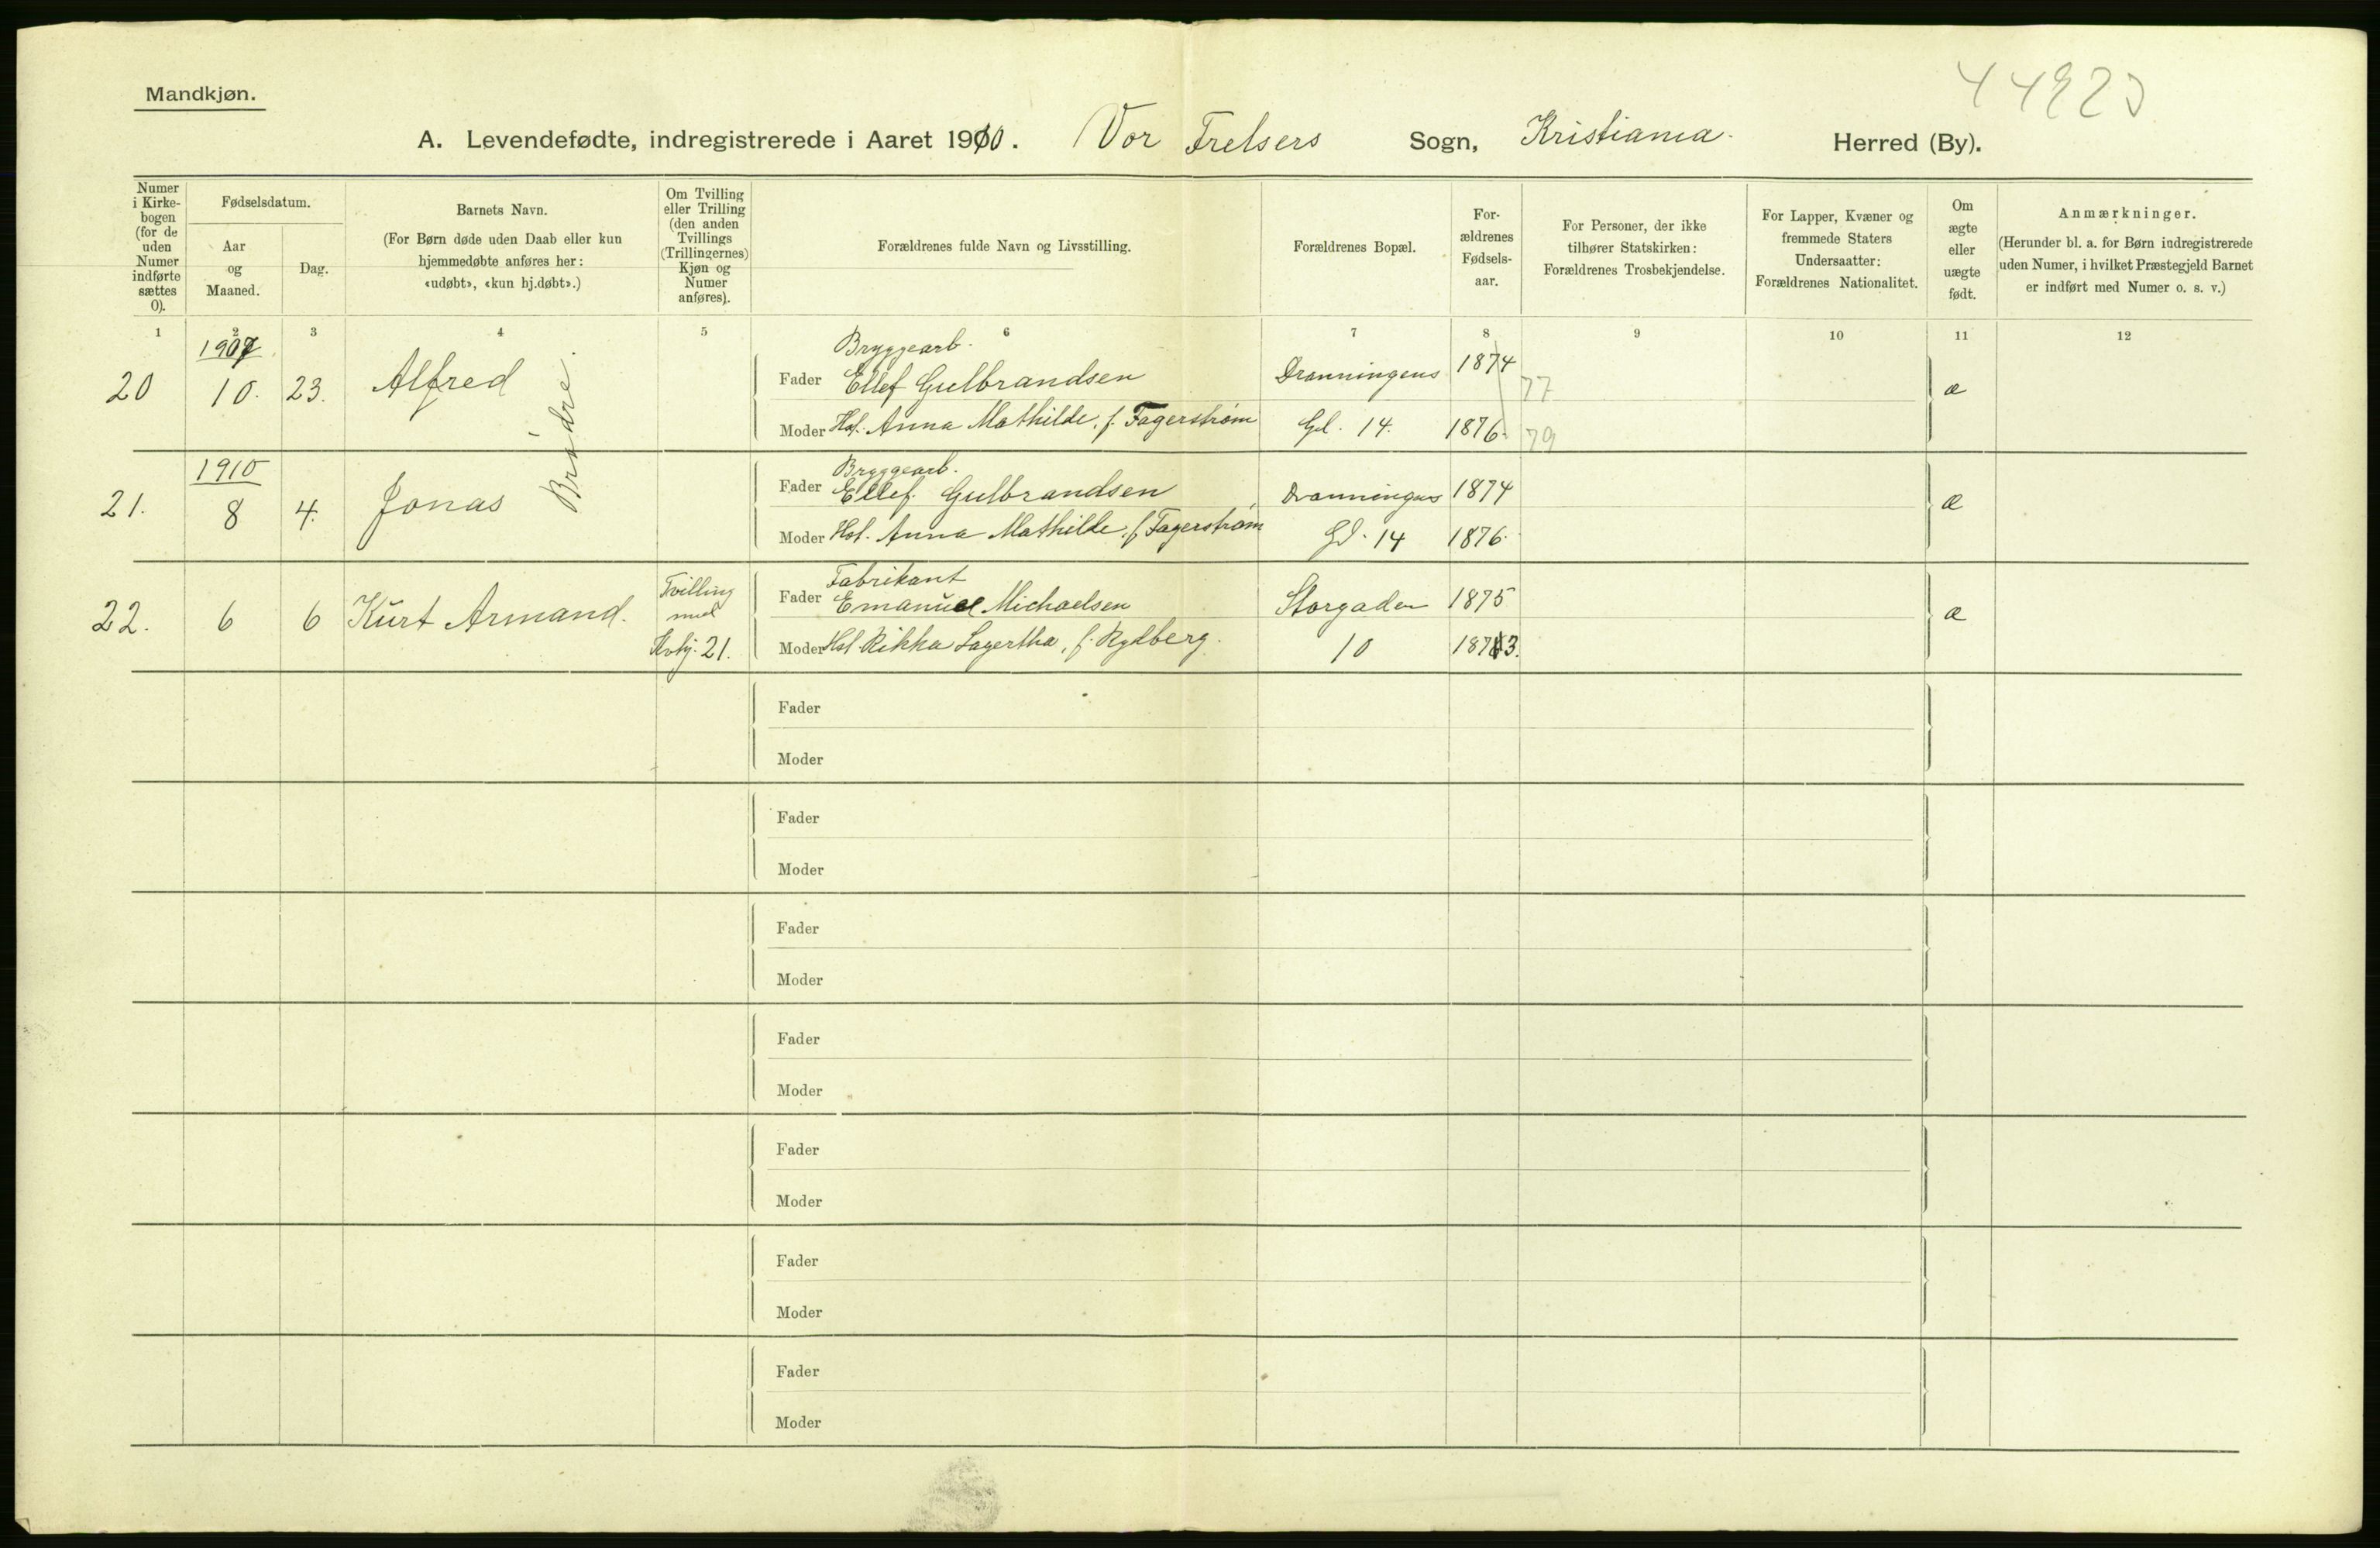 44823
Mandkjøn.
A. Levendefødte, indregistrerede i Aaret 1910. Vor Frelsers Sogn, Kristiania. Herred (By).
Numer i Kirke-bogen (for de uden Numer indførte sættes 0).
Fødselsdatum.
Aar og Maaned.
Dag.
Barnets Navn.
(For Børn døde uden Daab eller kun
hjemmedøbte anføres her:
«udøbt», «kun hj.døbt».)
Om Tvilling
eller Trilling
(den anden
Tvillings
(Trillingernes)
Kjøn og
Numer
anføres).
Forældrenes fulde Navn og Livsstilling.
Forældrenes Bopæl.
For-
ældrenes
Fødsels-
aar.
For Personer, der ikke
tilhører Statskirken:
Forældrenes Trosbekjendelse.
For Lapper, Kvæner og
fremmede Staters
Undersaatter:
Forældrenes Nationalitet.
Om
ægte
eller
uægte
født.
Anmærkninger.
(Herunder bl. a. for Børn indregistrerede
uden Numer, i hvilket Præstegjeld Barnet
er indført med Numer o. s. v.)
1 2 3 4 5 6 7 8 9 10 11 12
1907
Bryggearb.
20 10. 23. Alfred Fader Ellef Gulbrandsen Dronningens 1874 77 æ
Moder Hst. Anna Mathilde, f. Fagerstrøm Gd. 14. 1876. 79
Brødre.
1910
Bryggearb.
21. 8 4. Jonas Fader Ellef Gulbrandsen Dronningens 1874 æ
Moder Hst. Anna Mathilde, f. Fagerstrøm Gd. 14 1876.
Fabrikant
22. 6 6 Kurt Armand. Tvilling med Kvkj. 21. Fader Emanuel Michaelsen Storgaden 1875 æ
Moder Hst Rikka Lagertha, f. Rydberg. 10 1873.
Fader
Moder
Fader
Moder
Fader
Moder
Fader
Moder
Fader
Moder
Fader
Moder
Fader
Moder